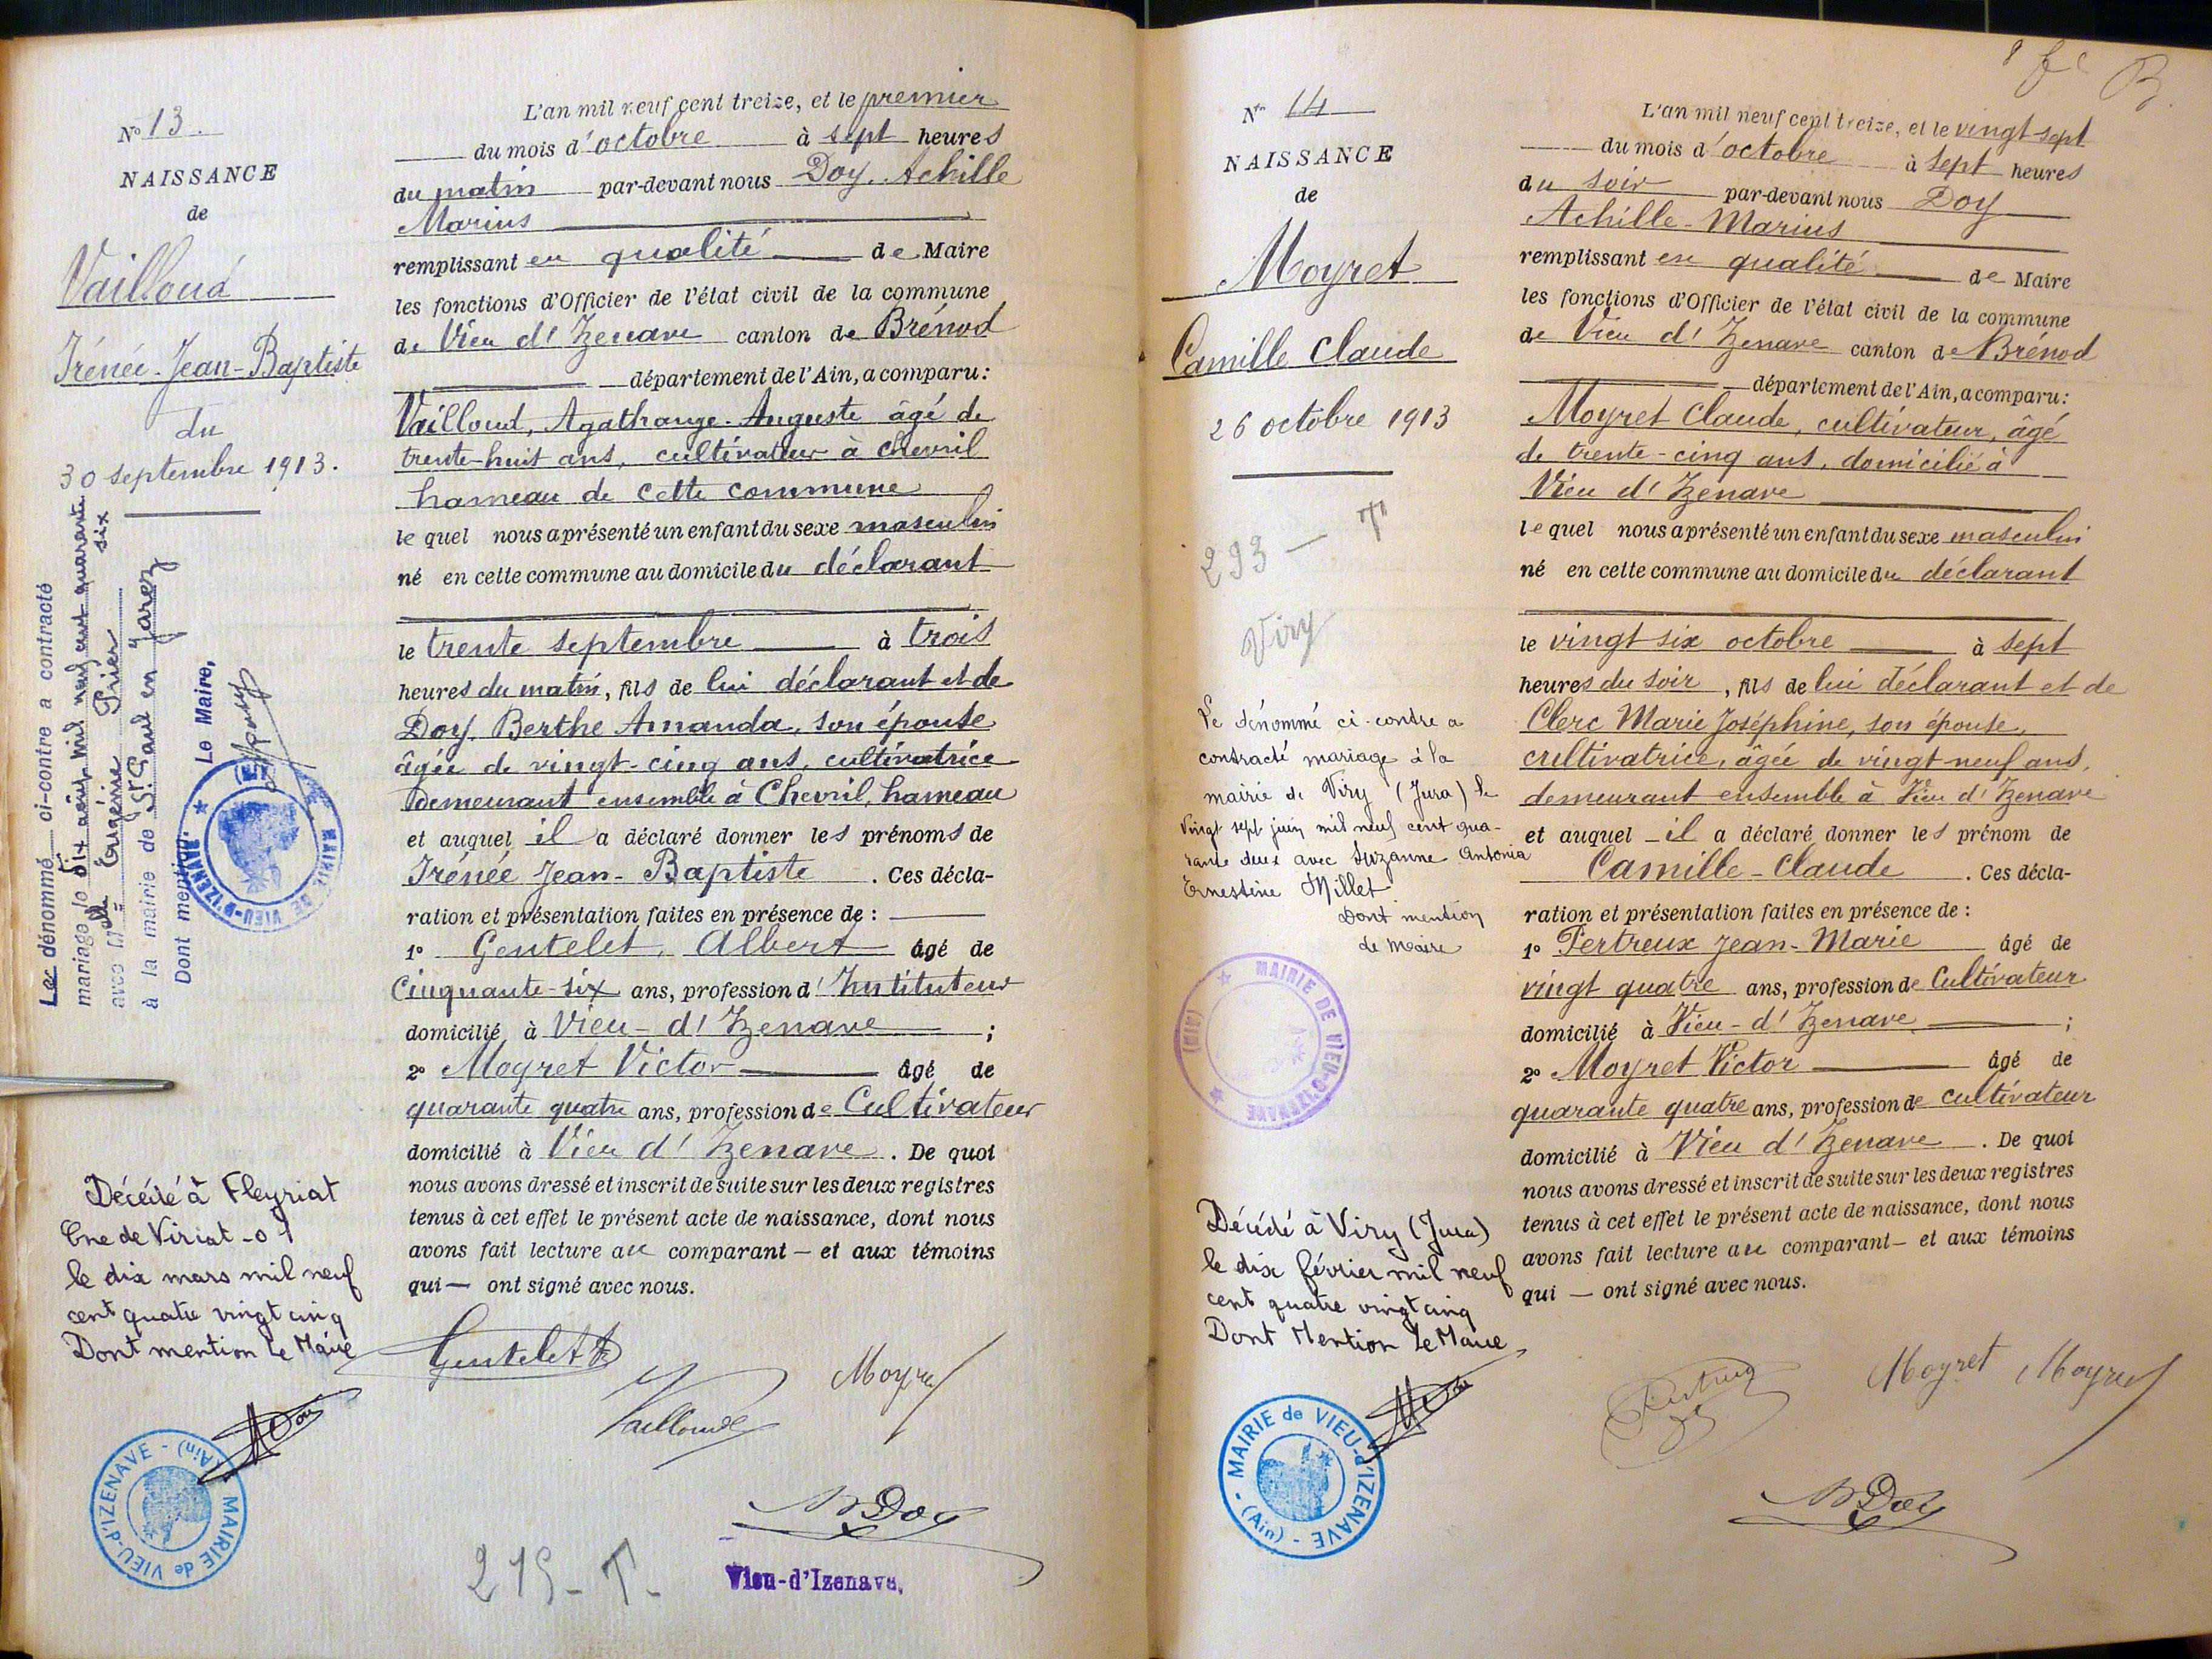 N° 13.
NAISSANCE
de
Vailloud
Irénée-Jean-Baptiste
du
30 septembre 1913.
Le dénommé ci-contre a contracté
mariage le dix août mil neuf cent quarante
six
avec Melle Eugénie Prier
à la mairie de St Paul en Jarez
Dont mention. Le Maire,
MAIRIE DE VIEU-D'IZENAVE
Décédé à Fleyriat
Cne de Viriat -01
le dix mars mil neuf
cent quatre vingt cinq
Dont mention Le Maire
MAIRIE de VIEU-d'IZENAVE - (Ain)
L'an mil neuf cent treize, et le premier
du mois d'octobre à sept heures
du matin par-devant nous Doy. Achille
Marius
remplissant en qualité de Maire
les fonctions d'Officier de l'état civil de la commune
de Vieu d'Izenave canton de Brénod
département de l'Ain, a comparu :
Vailloud, Agathange-Auguste âgé de
trente-huit ans, cultivateur à Chevril
hameau de cette commune
lequel nous a présenté un enfant du sexe masculin
né en cette commune au domicile du déclarant
le trente septembre à trois
heures du matin, fils de lui déclarant et de
Doy. Berthe Amanda, son épouse
âgée de vingt-cinq ans, cultivatrice
demeurant ensemble à Chevril, hameau
et auquel il a déclaré donner les prénoms de
Irénée Jean-Baptiste . Ces décla-
ration et présentation faites en présence de :
1° Gentelet, Albert âgé de
Cinquante-six ans, profession d'Instituteur
domicilié à Vieu-d'Izenave ;
2° Moyret Victor âgé de
quarante quatre ans, profession de Cultivateur
domicilié à Vieu d'Izenave . De quoi
nous avons dressé et inscrit de suite sur les deux registres
tenus à cet effet le présent acte de naissance, dont nous
avons fait lecture au comparant — et aux témoins
qui — ont signé avec nous.
Gentelet
Vailloud
Moyret
Doy
219-T-
Vieu-d'Izenave.
N° 14
NAISSANCE
de
Moyret
Camille Claude
26 octobre 1913
293 — T
Viry
Le dénommé ci-contre a
contracté mariage à la
mairie de Viry (Jura) le
Vingt sept juin mil neuf cent qua-
rante deux avec Suzanne Antonia
Ernestine Millet
Dont mention
le Maire
MAIRIE DE VIEU-D'IZENAVE (AIN)
Décédé à Viry (Jura)
le dix février mil neuf
cent quatre vingt cinq
Dont Mention Le Maire
MAIRIE de VIEU-d'IZENAVE - (Ain) -
L'an mil neuf cent treize, et le vingt sept
du mois d'octobre à sept heures
du soir par-devant nous Doy
Achille-Marius
remplissant en qualité de Maire
les fonctions d'Officier de l'état civil de la commune
de Vieu d'Izenave canton de Brénod
département de l'Ain, a comparu :
Moyret Claude, cultivateur, âgé
de trente-cinq ans, domicilié à
Vieu d'Izenave
lequel nous a présenté un enfant du sexe masculin
né en cette commune au domicile du déclarant
le vingt six octobre à sept
heures du soir , fils de lui déclarant et de
Clerc Marie Joséphine, son épouse,
cultivatrice, âgée de vingt-neuf ans,
demeurant ensemble à Vieu d'Izenave
et auquel il a déclaré donner les prénom de
Camille-Claude . Ces décla-
ration et présentation faites en présence de :
1° Pertreux Jean-Marie âgé de
vingt quatre ans, profession de Cultivateur
domicilié à Vieu-d'Izenave ;
2° Moyret Victor âgé de
quarante quatre ans, profession de cultivateur
domicilié à Vieu d'Izenave . De quoi
nous avons dressé et inscrit de suite sur les deux registres
tenus à cet effet le présent acte de naissance, dont nous
avons fait lecture au comparant — et aux témoins
qui — ont signé avec nous.
Moyret Moyret
Doy